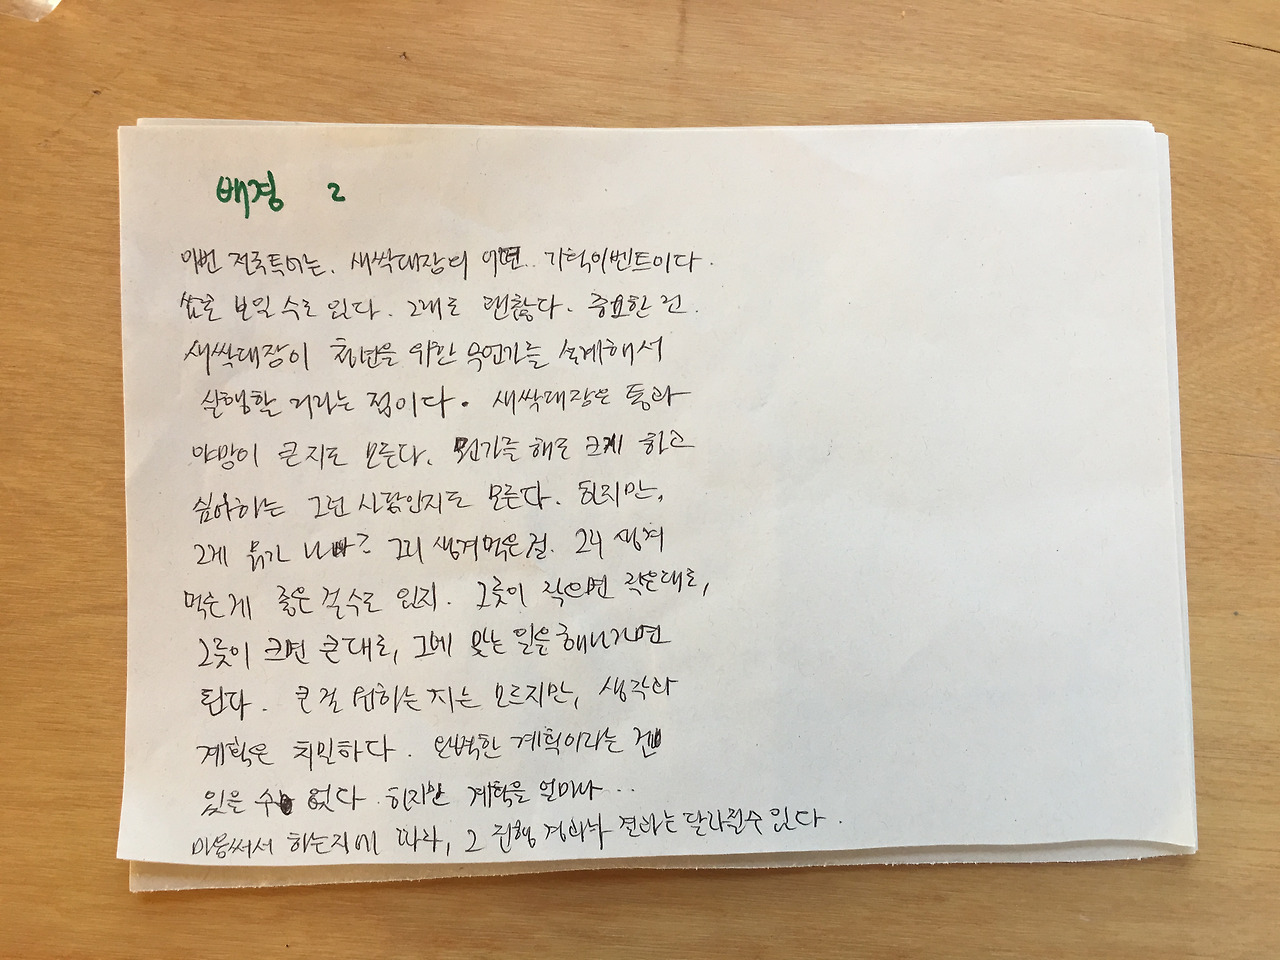 배경 2
이번 전국투어는, 새싹대장의 이면.. 기획이벤트이다.
쇼로 보일 수도 있다. 그래도 괜찮다. 중요한 건.
새싹대장이 청년을 위한 무언가를 설계해서
실행할 거라는 점이다. 새싹대장은 통과
야망이 큰지도 모른다. 뭔가를 해도 크게 하고
싶어하는 그런 사람인지도 모른다. 하지만,
그게 뭐가 나빠? 그리 생겨먹은걸. 그리 생겨
먹은게 좋은 걸수도 있지. 그릇이 작으면 작은대로,
그릇이 크면 큰대로, 그에 맞는 일을 해나가면
된다. 큰걸 원하는지는 모르지만, 생각과
계획은 치밀하다. 완벽한 계획이라는 건
있을 수 없다. 하지만 계획을 얼마나...
마음써서 하는지에 따라, 그 진행 경과나 결과는 달라질수 있다.